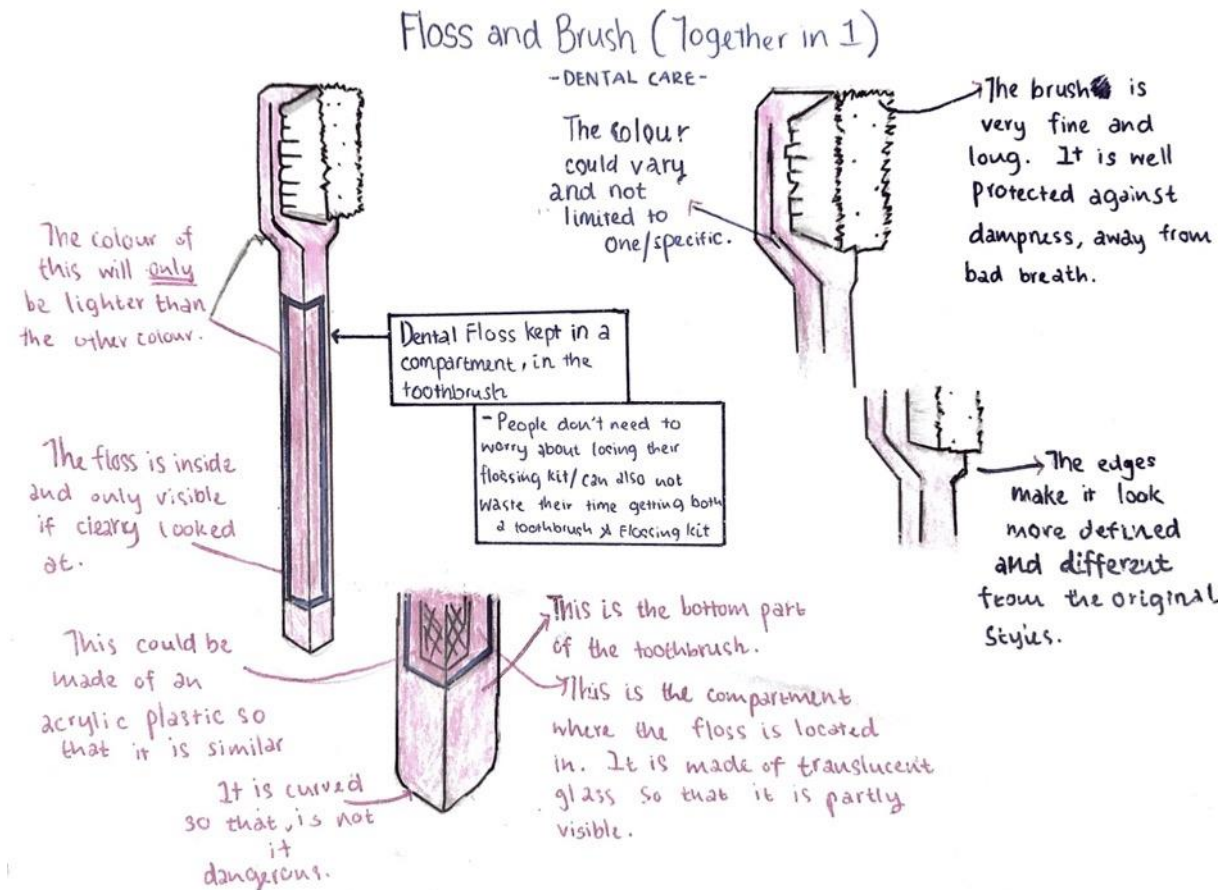 Floss and Brush (Together in 1)
-DENTAL CARE-
The colour
could vary
and not
limited to
one/specific.
The brush is
very fine and
long. It is well
protected against
dampness, away from
bad breath.
The colour of
this will only
be lighter than
the other colour.
Dental Floss kept in a
compartment, in the
toothbrush
- People don't need to
worry about losing their
flossing kit/can also not
waste their time getting both
a toothbrush & Flossing kit
The edges
make it look
more defined
and different
from the original
Styles.
The floss is inside
and only visible
if cleary looked
at.
This could be
made of an
acrylic plastic so
that it is similar
This is the bottom part
of the toothbrush.
This is the compartment
where the floss is located
in. It is made of translucent
glass so that it is partly
visible.
It is curved
so that, is not
it
dangerous.